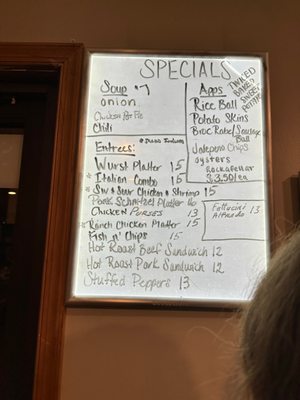 SPECIALS
Soup $7
onion
Chicken Pot Pie
Chili
Entrees:
Wurst Platter 15
* Italian Combo 15
* Swt & Sour Chicken & Shrimp 15
Pork Schnitzel Platter 16
CHICKEN PURSES 13
* Ranch Chicken Platter 15
Fish n' Chips 15
Hot Roast Beef Sandwich 12
Hot Roast Pork Sandwich 12
Stuffed Peppers 13
Apps
Rice Ball
Potato Skins
Broc Rabe/Sausage
Ball
Jalapeno Chips
oysters
Rockafellar
$3.50/ea
TWICED
BAKED
SWEET
POTATO
Fettucini 13
Alfredo